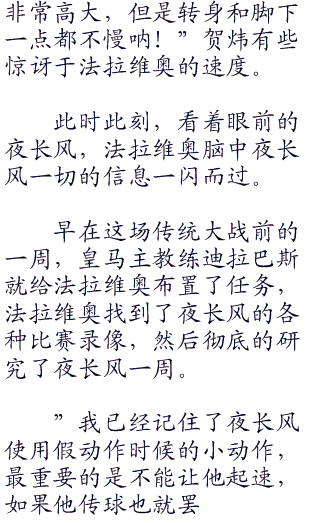 非常高大，但是转身和脚下
一点都不慢呐！”贺炜有些
惊讶于法拉维奥的速度。
此时此刻，看着眼前的
夜长风，法拉维奥脑中夜长
风一切的信息一闪而过。
早在这场传统大战前的
一周，皇马主教练迪拉巴斯
就给法拉维奥布置了任务，
法拉维奥找到了夜长风的各
种比赛录像，然后彻底的研
究了夜长风一周。
”我已经记住了夜长风
使用假动作时候的小动作，
最重要的是不能让他起速，
如果他传球也就罢